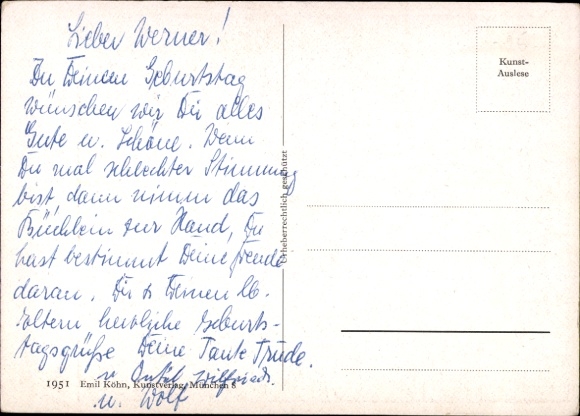 Lieber Werner!
Zu Deinem Geburtstag
wünschen wir Dir alles
Gute u. Schöne. Wenn
Du mal schlechter Stimmung
bist, dann nimm das
Büchlein zur Hand, Du
hast bestimmt Deine Freude
daran. Dir & Deinen lb.
Eltern herzliche Geburts-
tagsgrüße Deine Tante Trude.
u. Onkel Wilfried
u. Wolf
1951 Emil Köhn, Kunstverlag, München 8
Urheberrechtlich geschützt
Kunst-
Auslese